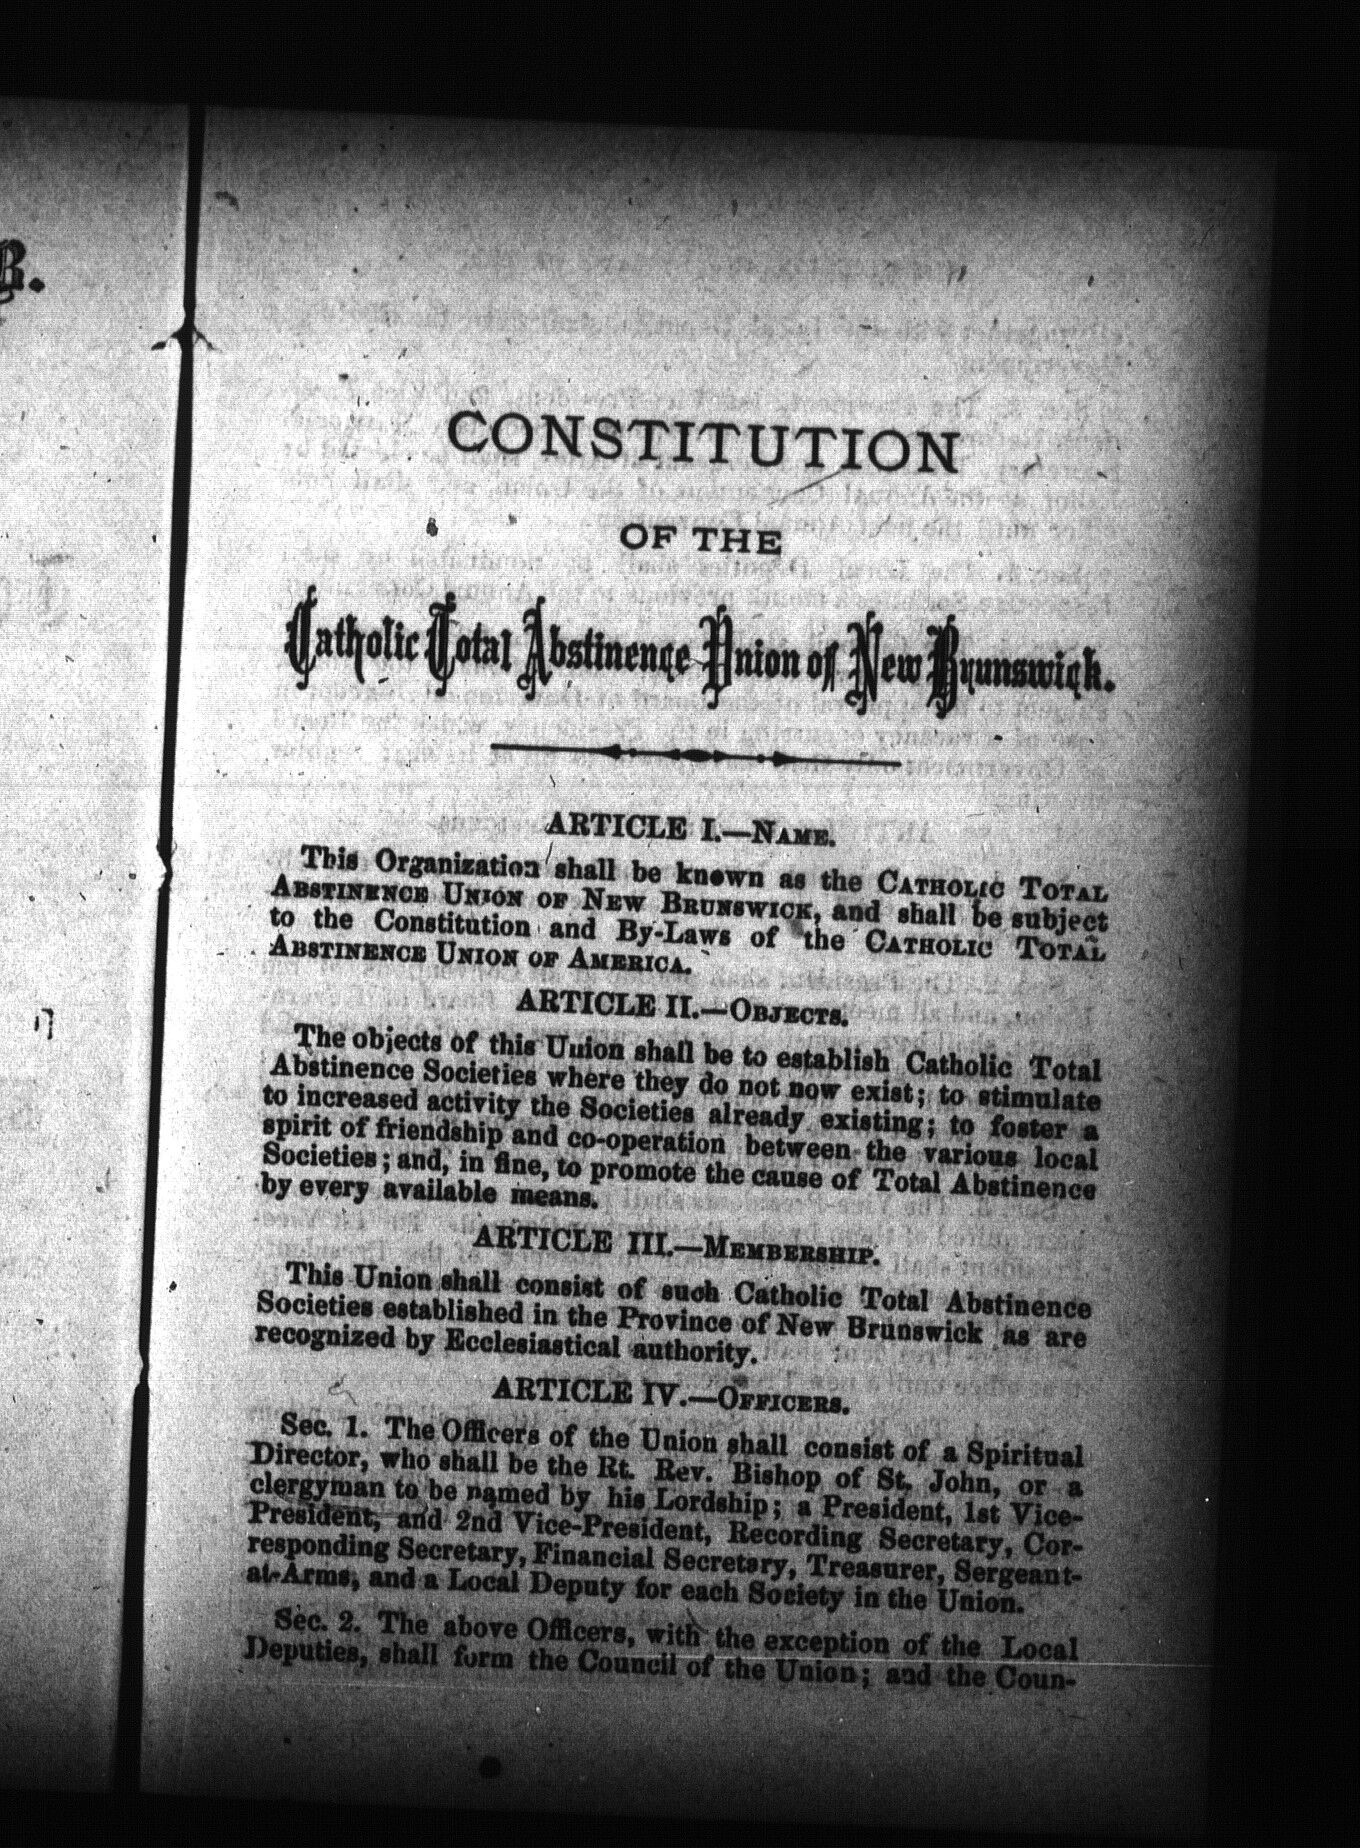 B.
CONSTITUTION
OF THE
Catholic Total Abstinence Union of New Brunswick.
ARTICLE I.—NAME.
This Organization shall be known as the CATHOLIC TOTAL
ABSTINENCE UNION OF NEW BRUNSWICK, and shall be subject
to the Constitution and By-Laws of the CATHOLIC TOTAL
ABSTINENCE UNION OF AMERICA.
ARTICLE II.—OBJECTS.
The objects of this Union shall be to establish Catholic Total
Abstinence Societies where they do not now exist; to stimulate
to increased activity the Societies already existing; to foster a
spirit of friendship and co-operation between the various local
Societies; and, in fine, to promote the cause of Total Abstinence
by every available means.
ARTICLE III.—MEMBERSHIP.
This Union shall consist of such Catholic Total Abstinence
Societies established in the Province of New Brunswick as are
recognized by Ecclesiastical authority.
ARTICLE IV.—OFFICERS.
Sec. 1. The Officers of the Union shall consist of a Spiritual
Director, who shall be the Rt. Rev. Bishop of St. John, or a
clergyman to be named by his Lordship; a President, 1st Vice-
President, and 2nd Vice-President, Recording Secretary, Cor-
responding Secretary, Financial Secretary, Treasurer, Sergeant-
at-Arms, and a Local Deputy for each Society in the Union.
Sec. 2. The above Officers, with the exception of the Local
Deputies, shall form the Council of the Union; and the Coun-